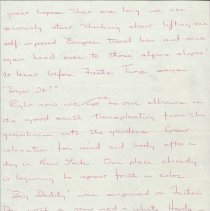 great hopes that ere long we can
seriously start thinking about lifting our
self-imposed European travel ban and once
again head over to those alpine slopes!
at least before Father Time says
"Forget it!"
Right now we are up to our elbows in
the good earth transplanting from the
greenhouse into the gardens. Great
relaxation for mind and body after a
day in New York. Our place already
is beginning to sprout forth in color.
"Big Daddy" was surprised on Father's
Day with a